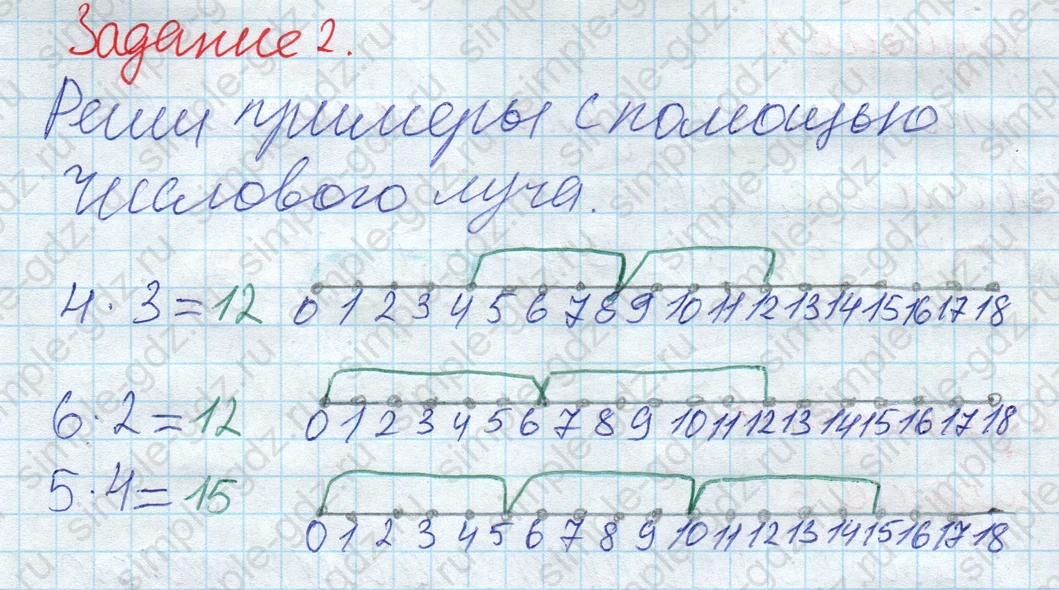 Задание 2.
Реши примеры с помощью
числового луча.
4 · 3 = 12 0 1 2 3 4 5 6 7 8 9 10 11 12 13 14 15 16 17 18
6 · 2 = 12 0 1 2 3 4 5 6 7 8 9 10 11 12 13 14 15 16 17 18
5 · 4 = 15 0 1 2 3 4 5 6 7 8 9 10 11 12 13 14 15 16 17 18
simple-gdz.ru